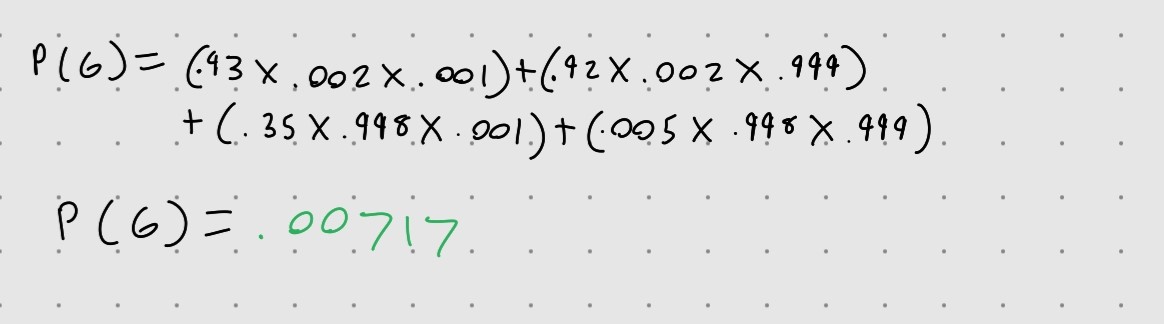 P(G) = (.93 X .002 X .001) + (.92 X .002 X .999)
+ (.35 X .998 X .001) + (.005 X .998 X .999)
P(G) = .00717